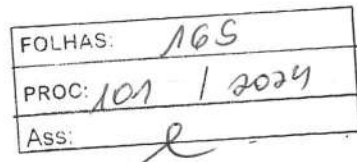 FOLHAS: 165
PROC: 101 / 2024
Ass: